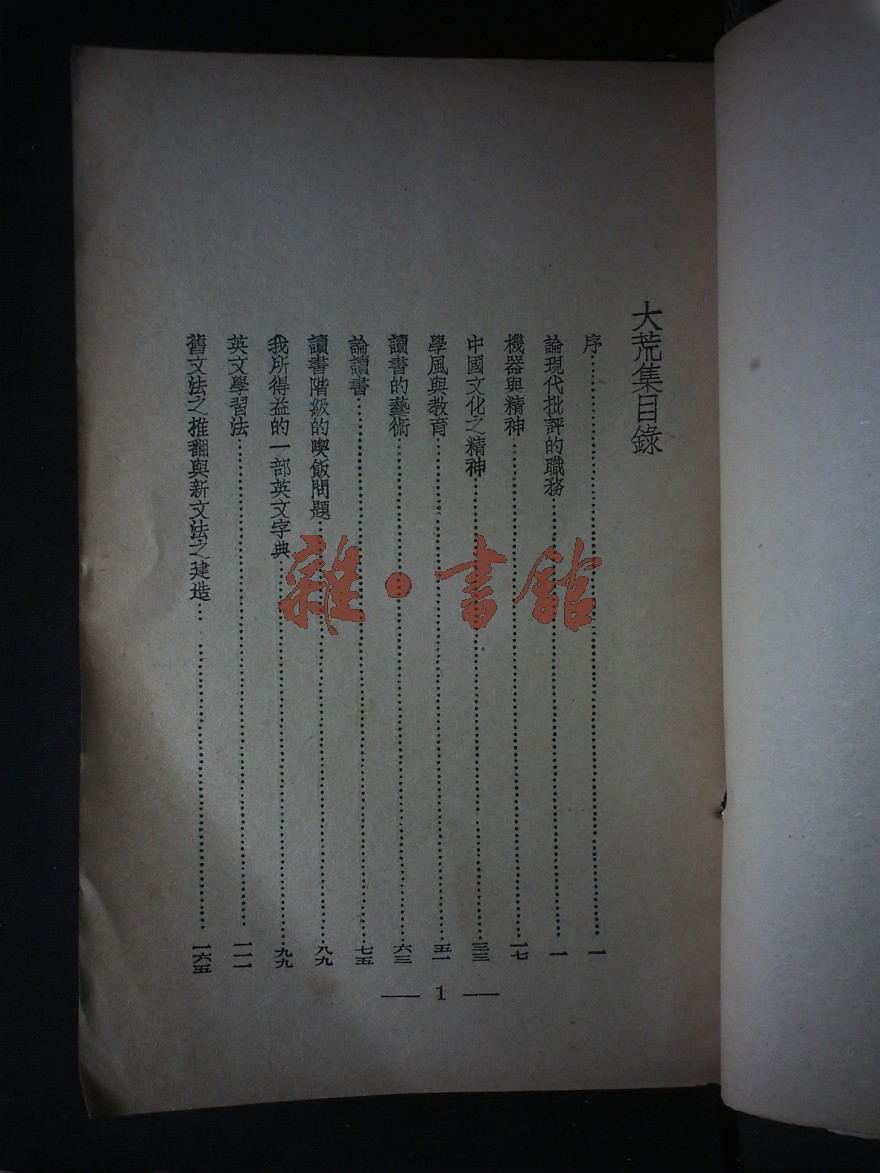 大荒集目錄
序……一
論現代批評的職務……一
機器與精神……一七
中國文化之精神……三三
學風與教育……五一
讀書的藝術……六三
論讀書……七五
讀書階級的喫飯問題……八九
我所得益的一部英文字典……九九
英文學習法……一一一
舊文法之推翻與新文法之建造……一六五
— 1 —
雜·書館